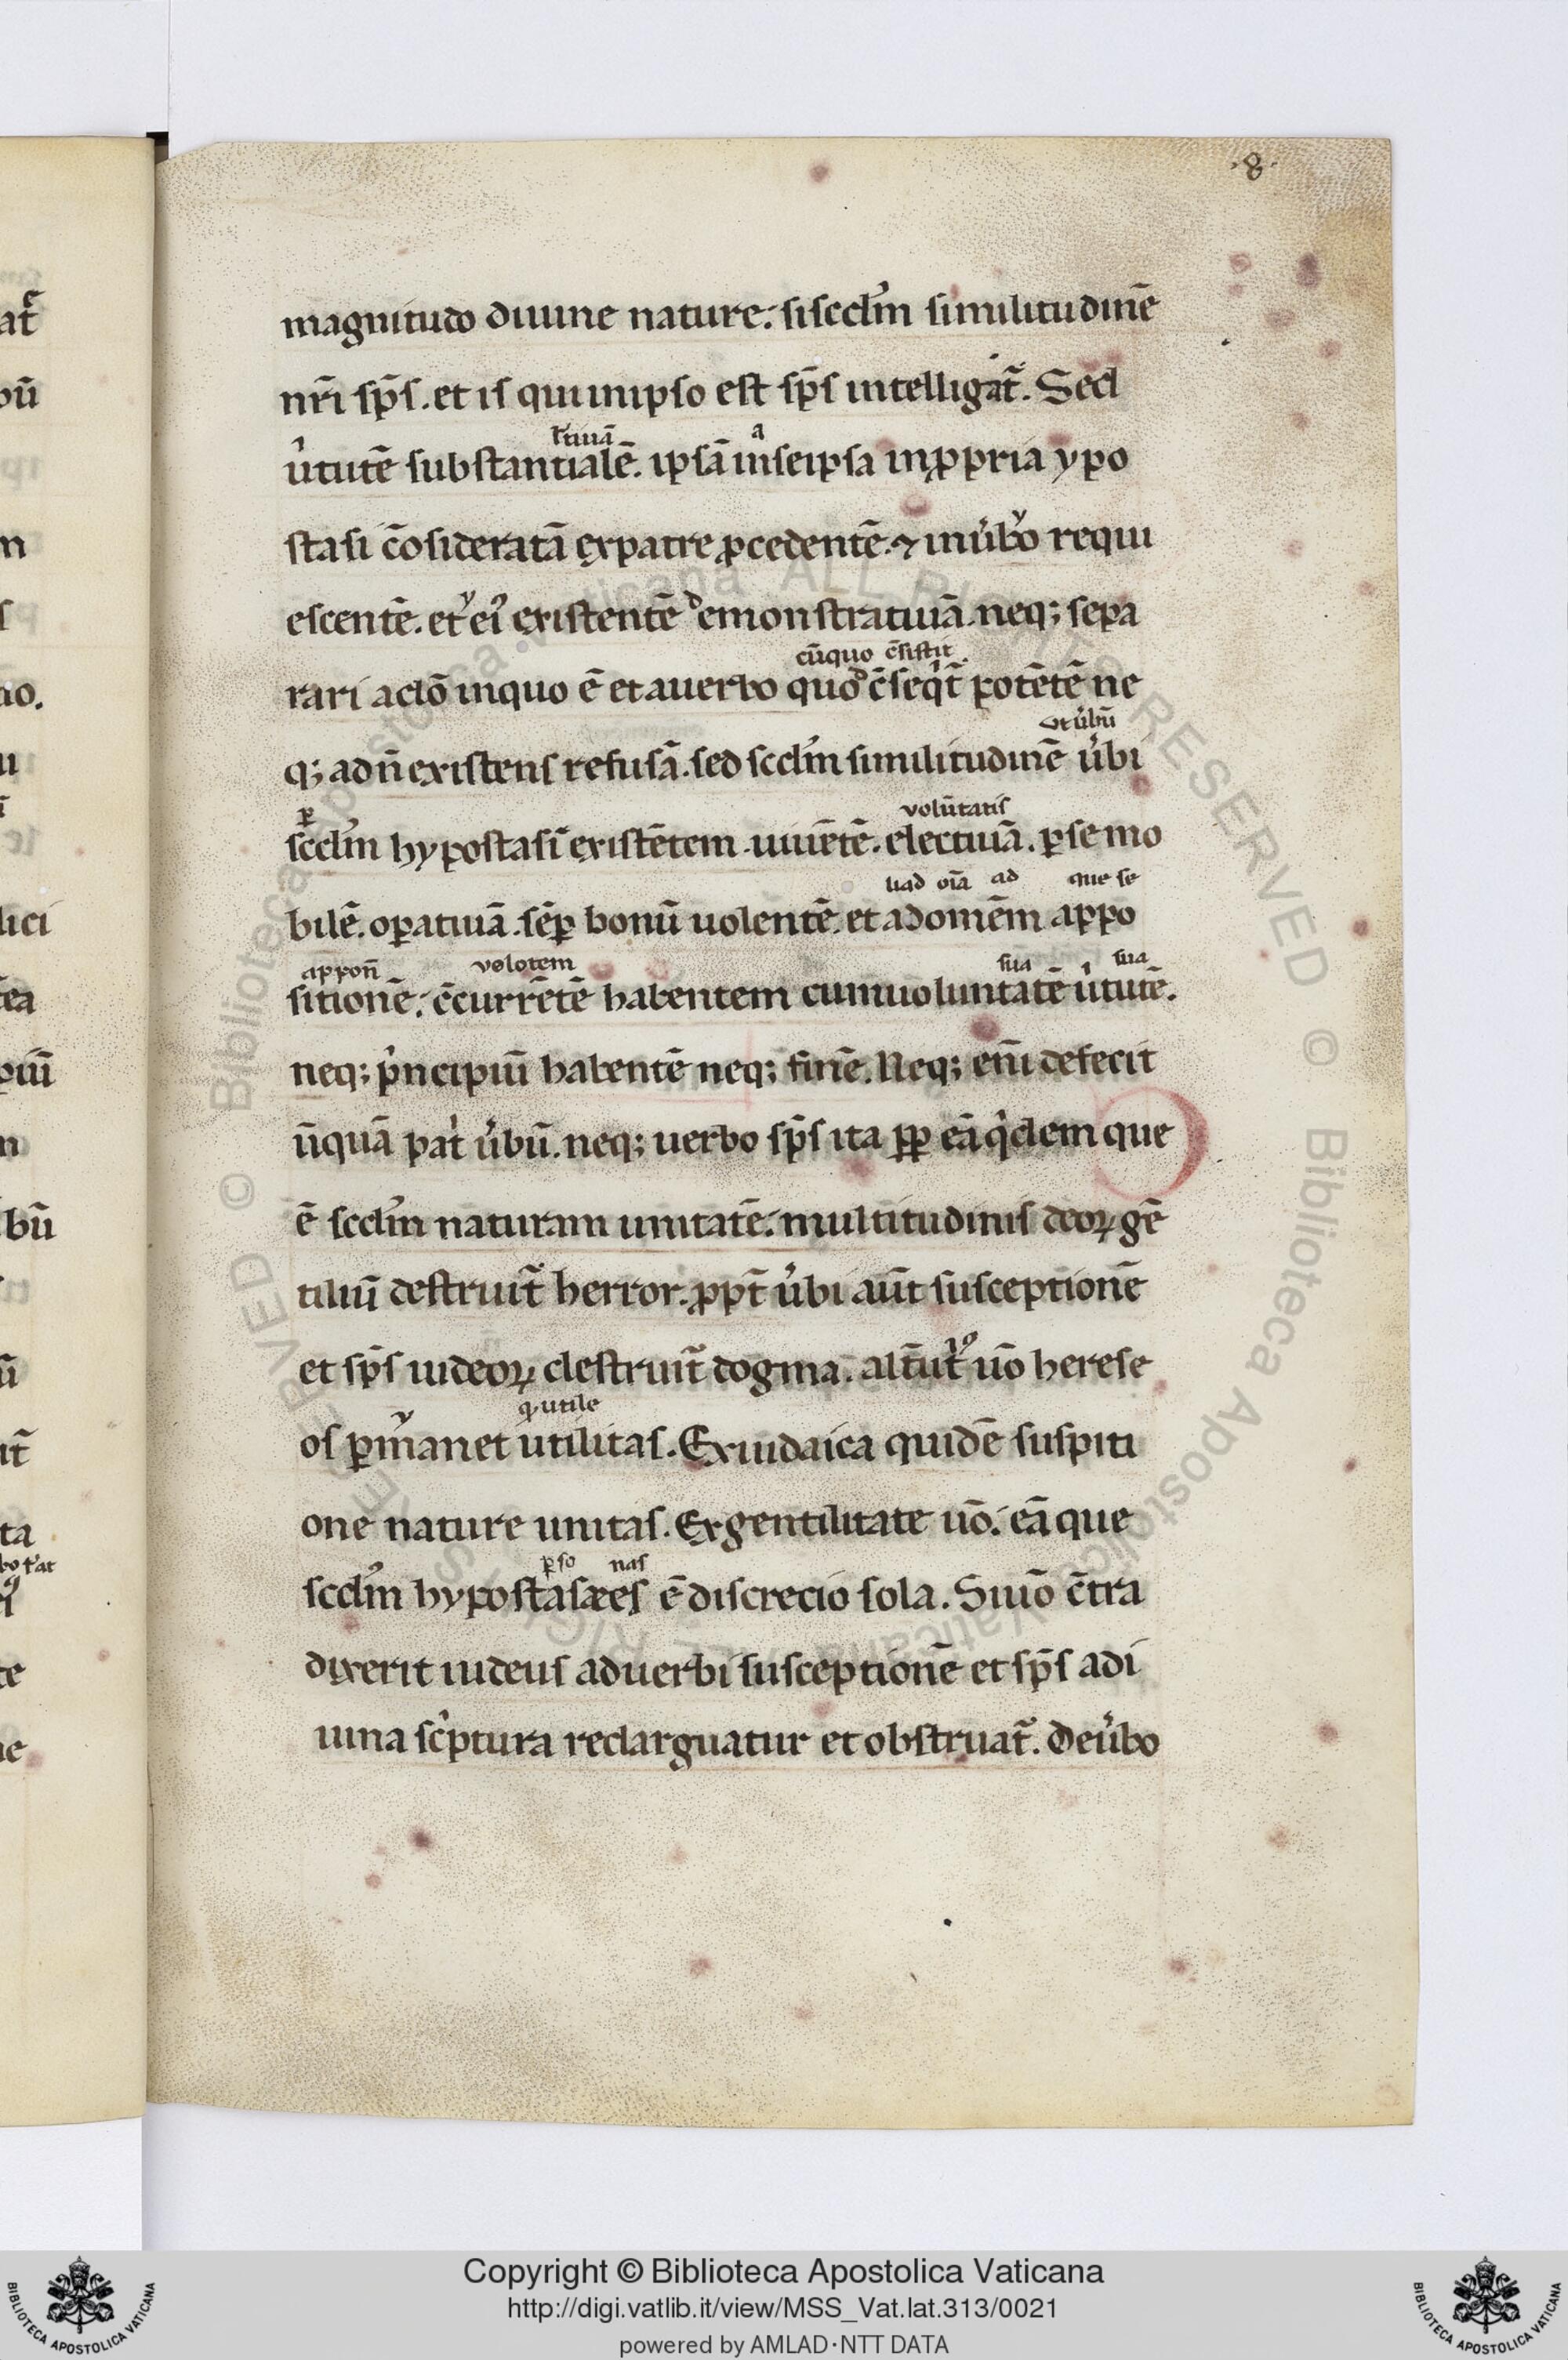 ·8·
magnitudo diuine nature. si scd̃m similitudinẽ
nr̃i sp̃s. et is qui inipso est sp̃s intelligat̃. Sed
rtiuã a
u̾tutẽ substantialẽ. ipsã inseipsa in ꝓpria ypo
stasi c̃osideratã ex patre ꝓcedentẽ. ⁊ in u̾bo requi
escentẽ. et ei᷒ existentẽ demonstratiuã. neq; sepa
cũquo c̃sistit
rari a do̅ inquo ẽ et a uerbo quod c̃seqit̃ potẽtẽ ne
ut u̾bũ
q; ad ñ existens refusã. sed scd̃m similitudinẽ u̾bi
ꝑ volũtatis
scd̃m hypostasĩ existẽtem. uiuẽtẽ. electiuã. ꝑse mo
uad oĩa ad que se
bilẽ. oꝑatiuã. sẽꝑ bonũ uolentẽ. et ad omẽm appo
apponñ volotem sua sua
sitionẽ. c̃currẽtẽ habentem cum uoluntatẽ u̾tutẽ.
neq; pincipiũ habentẽ neq; finẽ. Neq; enĩ defecit
ũquã pati u̾bũ. neq; uerbo sp̃s ita ꝓꝑ eã qidem que
ẽ scd̃m naturam unitatẽ. multitudinis deoꝝ gẽ
tiliũ destruit̃ herror. ꝓpt̃ u̾bi aũt susceptionẽ
et sp̃s iudeoꝝ destruit̃ dogma. alt̃ut̾ uõ herese
q utile
os ꝑmanet utilitas. Ex iudaica quidẽ suspiti
one nature unitas. Ex gentilitate uõ. eã que
ꝑso nas
scd̃m hypostasæes ẽ discrecio sola. Si uõ c̃tra
dixerit iudeus ad uerbi susceptionẽ et sp̃s a di
uina sciptura redarguatur et obstruat̃. De u̾bo
Copyright © Biblioteca Apostolica Vaticana
http://digi.vatlib.it/view/MSS_Vat.lat.313/0021
powered by AMLAD·NTT DATA
BIBLIOTECA APOSTOLICA VATICANA
BIBLIOTECA APOSTOLICA VATICANA